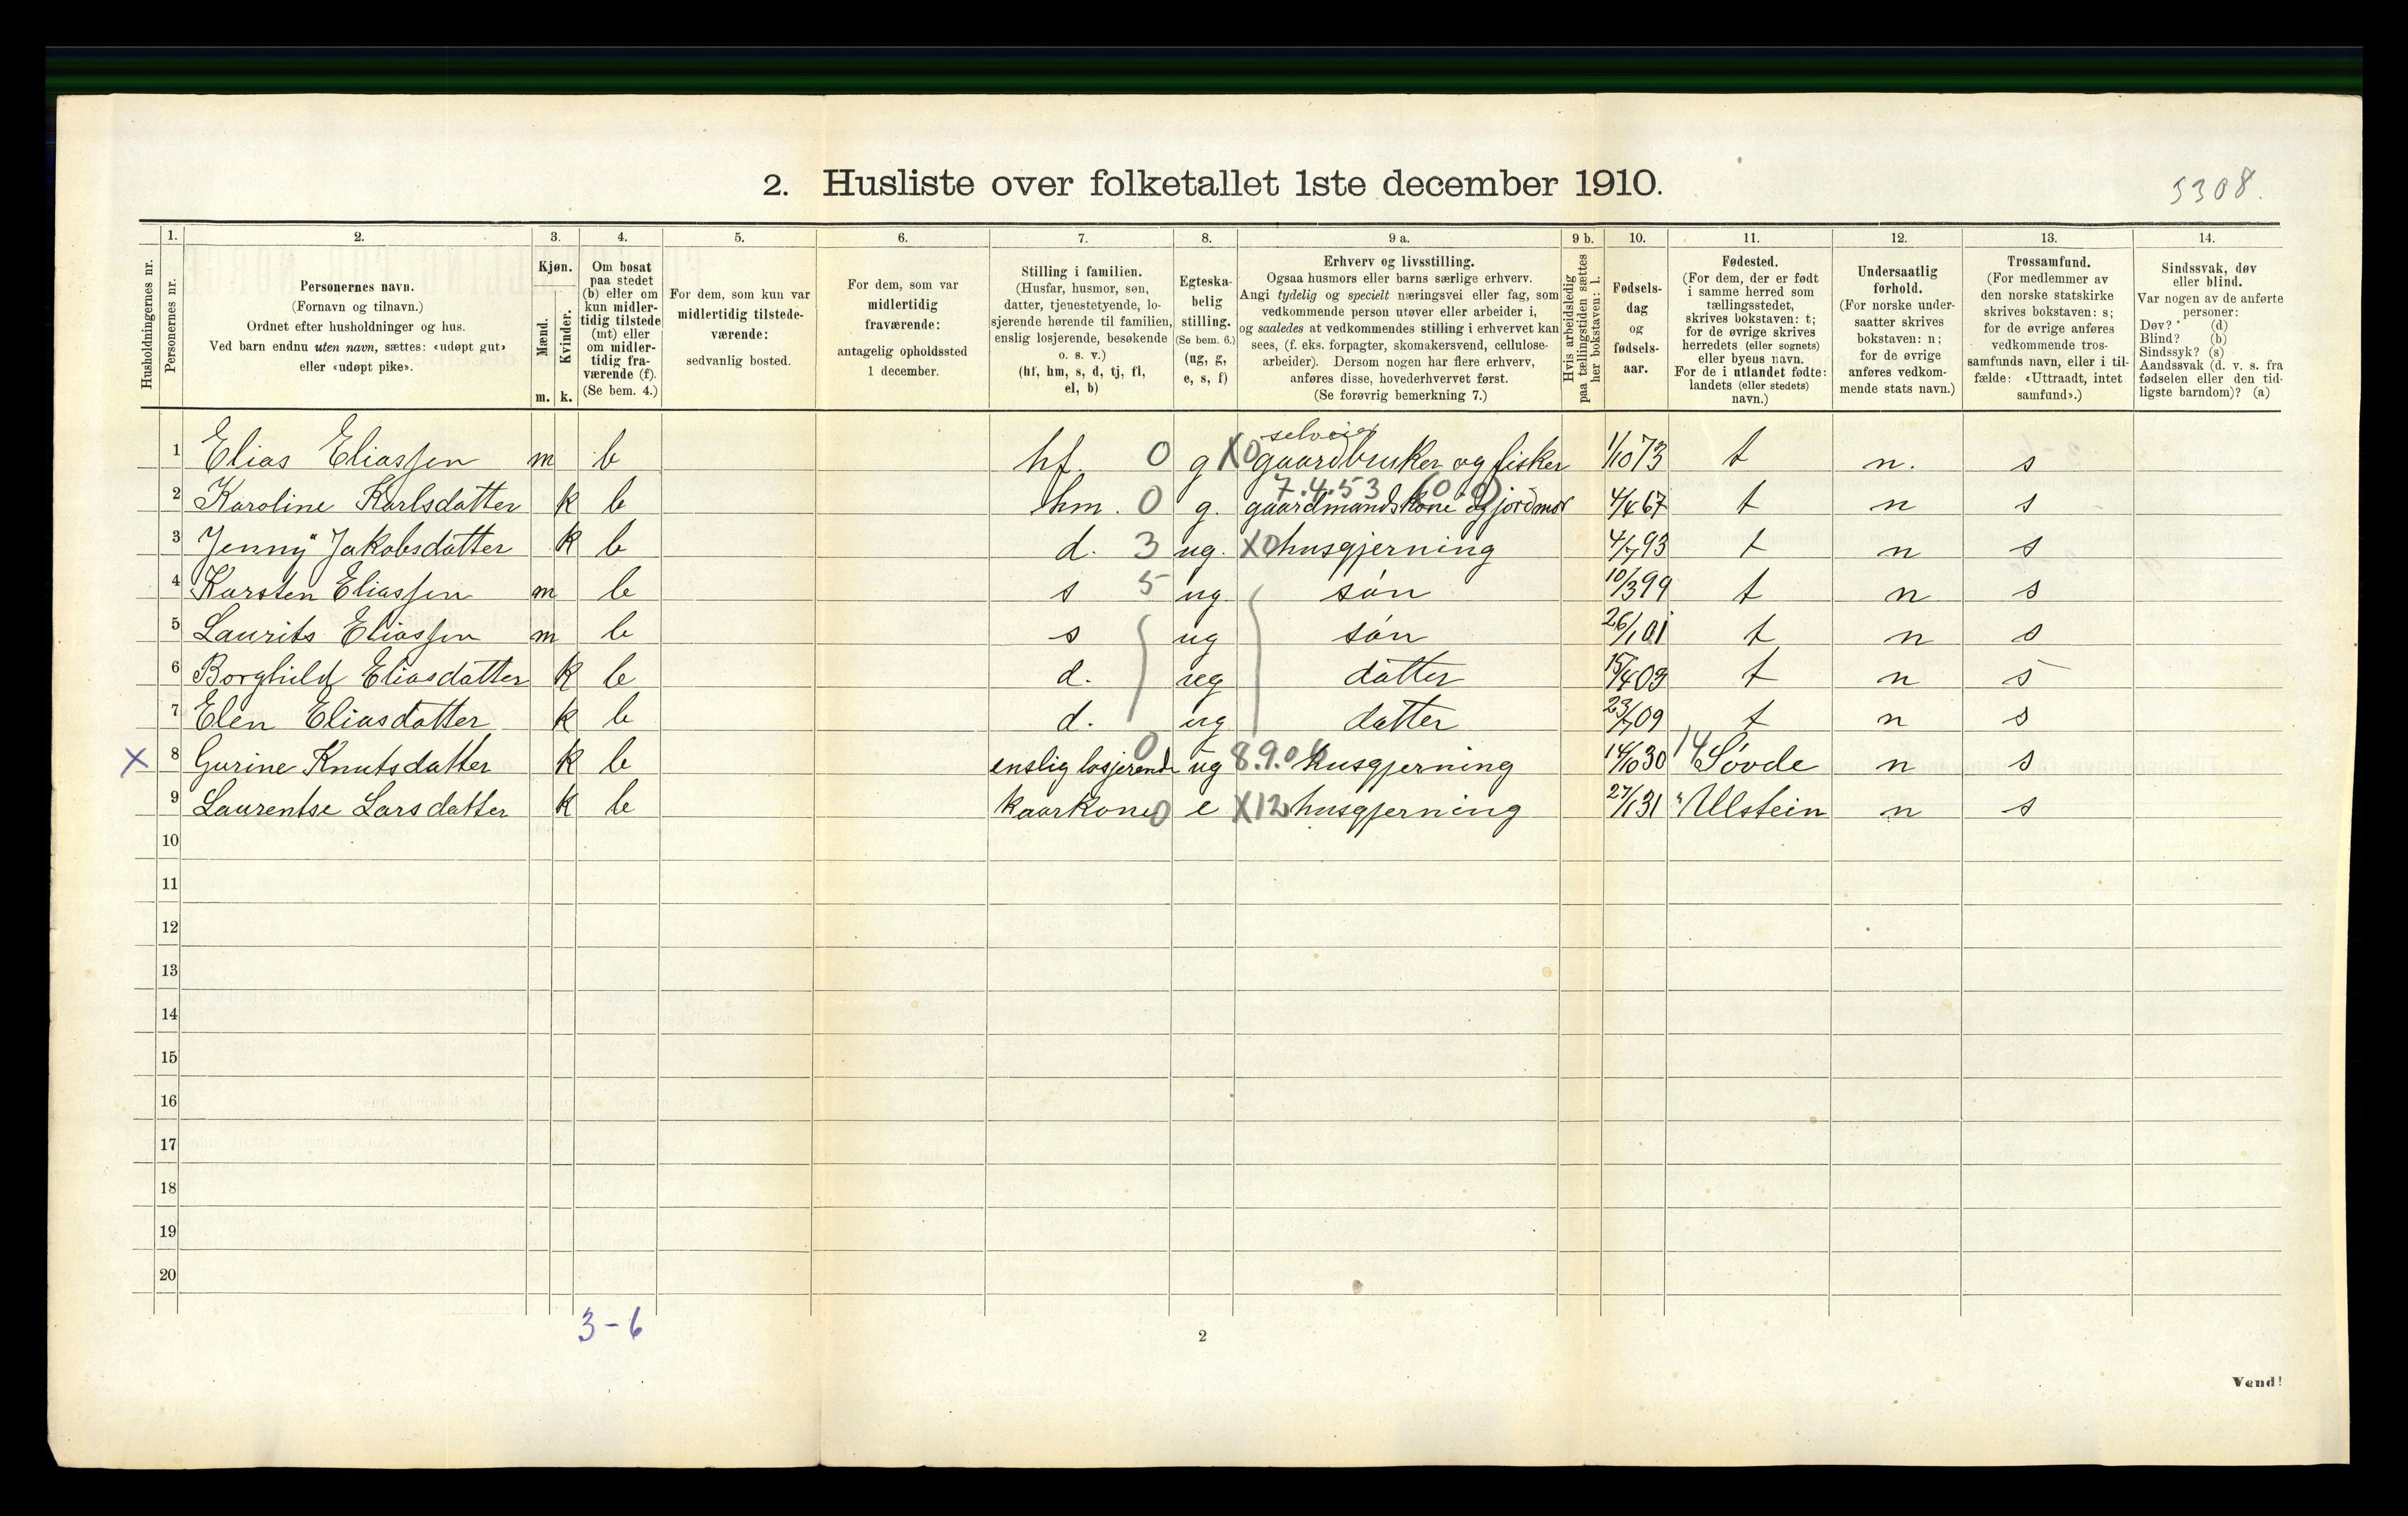 2. Husliste over folketallet 1ste december 1910.
5308.
Husholdningernes nr.
1.
Personernes nr.
2.
Personernes navn.
(Fornavn og tilnavn.)
Ordnet efter husholdninger og hus.
Ved barn endnu uten navn, sættes: «udøpt gut»
eller «udøpt pike».
3.
Kjøn.
Mænd.
Kvinder.
m. k.
4.
Om bosat
paa stedet
(b) eller om
kun midler-
tidig tilstede
(mt) eller
om midler-
tidig fra-
værende (f).
(Se bem. 4.)
5.
For dem, som kun var
midlertidig tilstede-
værende:
sedvanlig bosted.
6.
For dem, som var
midlertidig
fraværende:
antagelig opholdssted
1 december.
7.
Stilling i familien.
(Husfar, husmor, søn,
datter, tjenestetyende, lo-
sjerende hørende til familien,
enslig losjerende, besøkende
o. s. v.)
(hf, hm, s, d, tj, fl,
el, b)
8.
Egteska-
belig
stilling.
(Se bem. 6.)
(ug, g,
e, s, f)
9 a.
Erhverv og livsstilling.
Ogsaa husmors eller barns særlige erhverv.
Angi tydelig og specielt næringsvei eller fag, som
vedkommende person utøver eller arbeider i,
og saaledes at vedkommendes stilling i erhvervet kan
sees, (f. eks. forpagter, skomakersvend, cellulose-
arbeider). Dersom nogen har flere erhverv,
anføres disse, hovederhvervet først.
(Se forøvrig bemerkning 7.)
9 b.
Hvis arbeidsledig
paa tællingstiden sættes
her bokstaven: l.
10.
Fødsels-
dag
og
fødsels-
aar.
11.
Fødested.
(For dem, der er født
i samme herred som
tællingsstedet,
skrives bokstaven: t;
for de øvrige skrives
herredets (eller sognets)
eller byens navn.
For de i utlandet fødte:
landets (eller stedets)
navn.)
12.
Undersaatlig
forhold.
(For norske under-
saatter skrives
bokstaven: n;
for de øvrige
anføres vedkom-
mende stats navn.)
13.
Trossamfund.
(For medlemmer av
den norske statskirke
skrives bokstaven: s;
for de øvrige anføres
vedkommende tros-
samfunds navn, eller i til-
fælde: «Uttraadt, intet
samfund».)
14.
Sindssvak, døv
eller blind.
Var nogen av de anførte
personer:
Døv? (d)
Blind? (b)
Sindssyk? (s)
Aandssvak (d. v. s. fra
fødselen eller den tid-
ligste barndom)? (a)
selveier
1 Elias Eliassen m b hf. 0 g X0 gaardbruker og fisker 1/10 73 t n. s
7.4.53 (0.0)
2 Karoline Karlsdatter k b hm. 0 g. gaardmandskone og jordmor 4/4 67 t n s
3 Jenny Jakobsdatter k b d. 3 ug. X0 husgjerning 4/7 93 t n s
4 Karsten Eliassen m b s 5 ug søn 10/3 99 t n s
5 Laurits Eliassen m b s ug søn 26/1 01 t n s
6 Borghild Eliasdatter k b d. ug datter 15/4 03 t n s
7 Elen Eliasdatter k b d. ug datter 23/7 09 t n s
X 8 Gurine Knutsdatter k b enslig losjerende 0 ug 8.9.06 husgjerning 14/10 30 14 Søvde n s
9 Laurentse Larsdatter k b kaarkone 0 e X12 husgjerning 27/1 31 " Ulstein n s
10
11
12
13
14
15
16
17
18
19
20
3-6
2
Vend!